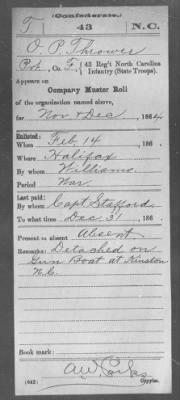 (Confederate.)
T 43 N.C.
O. P. Thrower
Pvt, Co. F, 43 Reg't North Carolina
Infantry (State Troops).
Appears on
Company Muster Roll
of the organization named above,
for Nov & Dec, 1864
Enlisted:
When Feb. 14, 186 .
Where Halifax
By whom Williams
Period War
Last paid:
By whom Capt Stafford
To what time Dec. 31, 186 .
Present or absent Absent
Remarks: Detached on
Gun Boat at Kinston
N.C.
Book mark:
(642) Copyist.